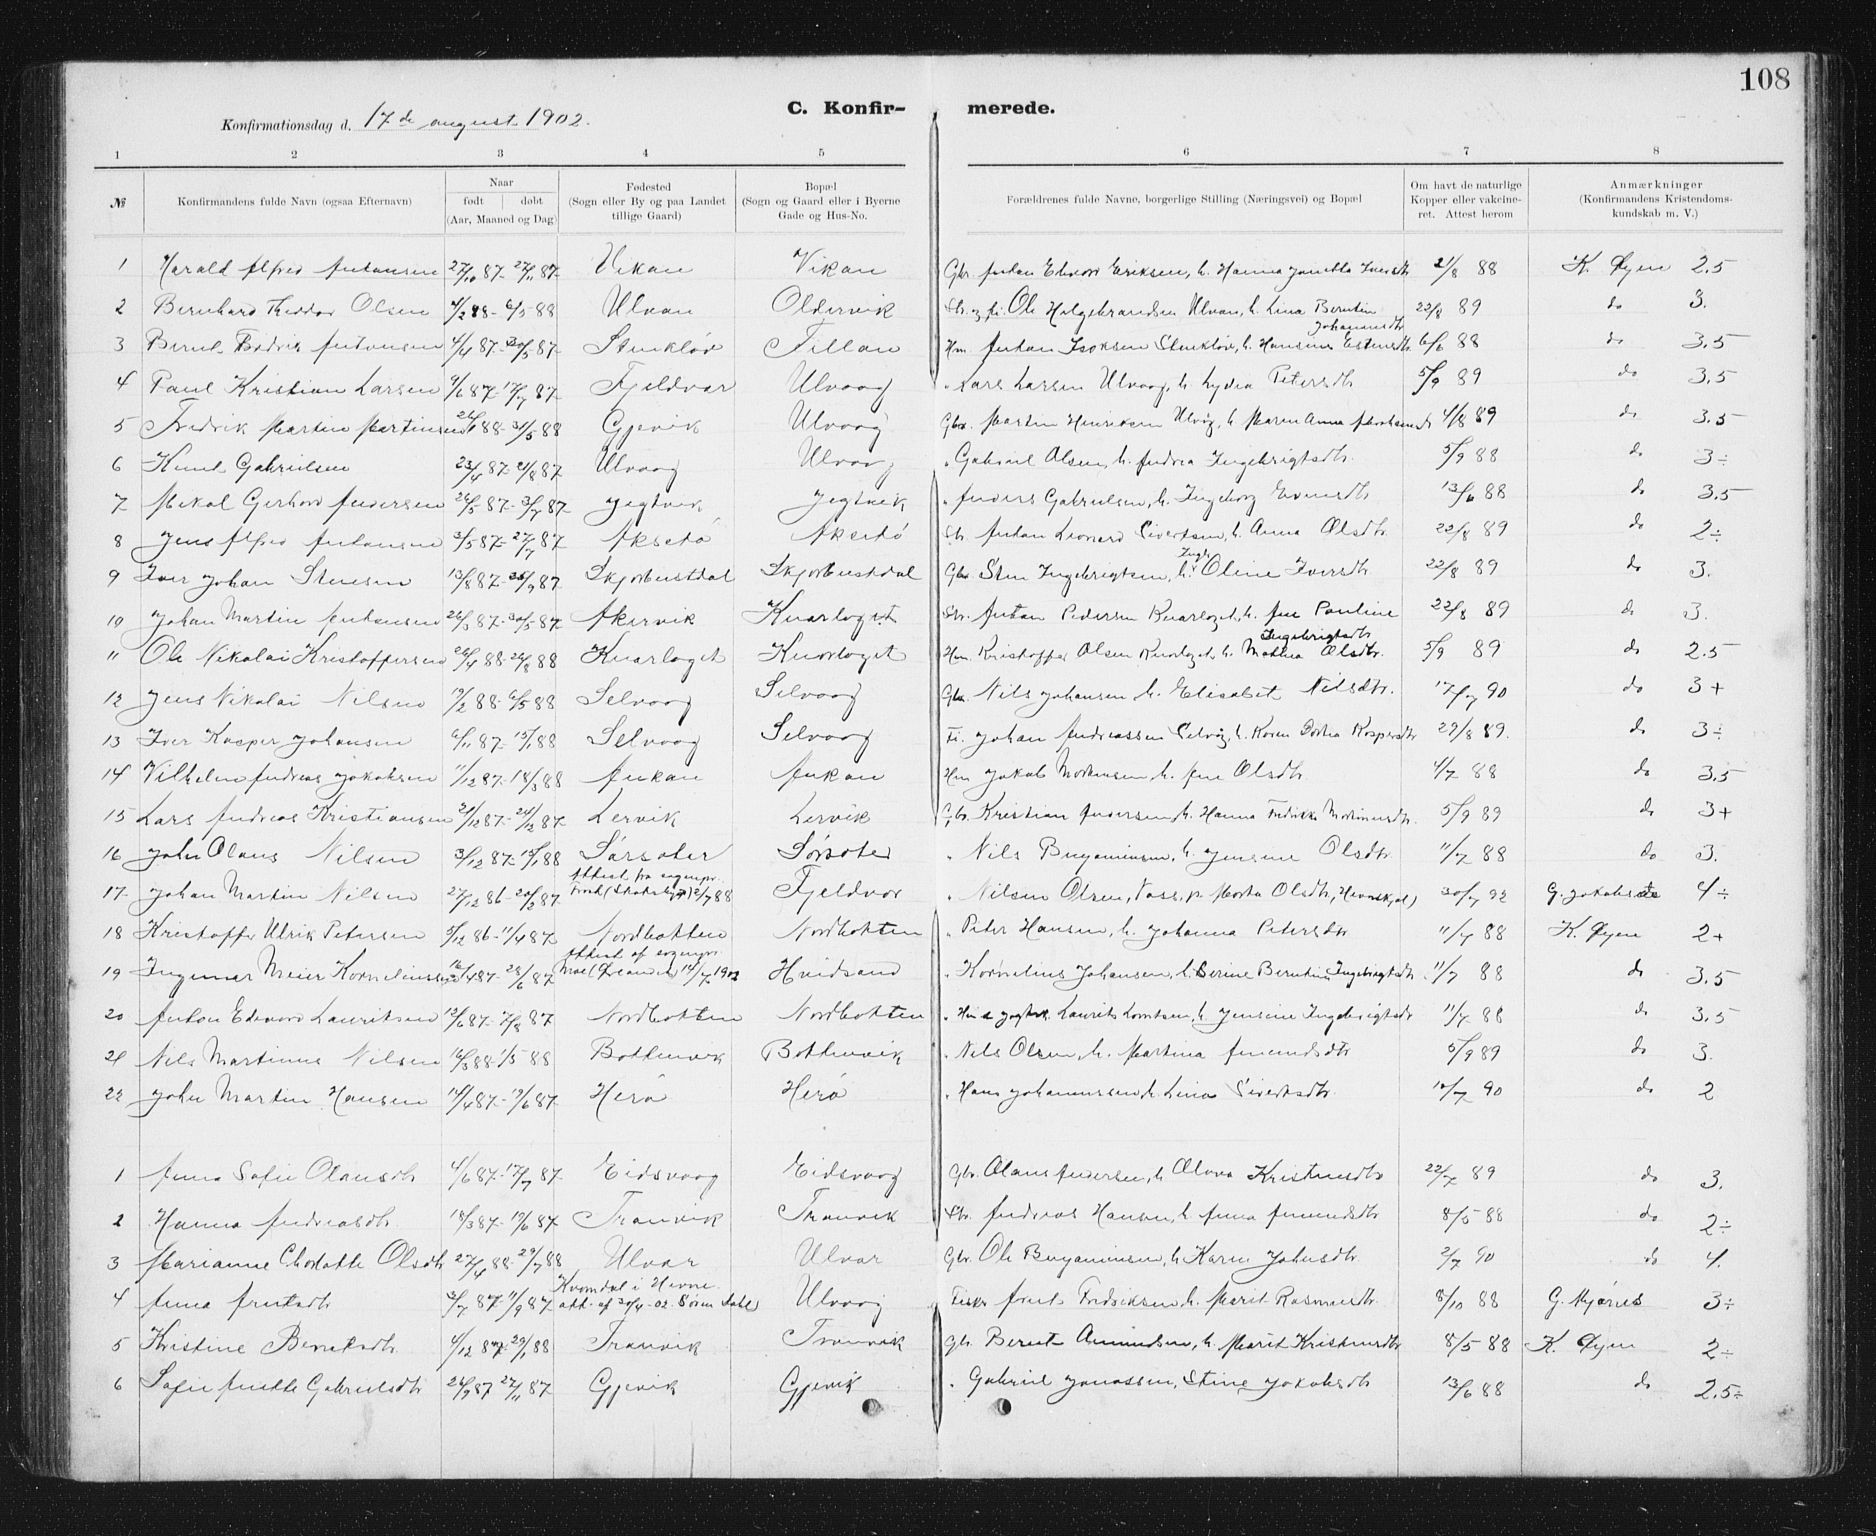 108
C. Konfir- merede.
Konfirmationsdag d. 17de august 1902.
1 2 3 4 5 6 7 8
№ Konfirmandens fulde Navn (ogsaa Efternavn) Naar født døbt (Aar, Maaned og Dag) Fødested (Sogn eller By og paa Landet tillige Gaard) Bopæl (Sogn og Gaard eller i Byerne Gade og Hus-No. Forældrenes fulde Navne, borgerlige Stilling (Næringsvei) og Bopæl Om havt de naturlige Kopper eller vakcineret. Attest herom Anmærkninger (Konfirmandens Kristendomskundskab m. V.)
1 Harald Alfred Antonsen 27/10 87- 27/11 87- Vikan Vikan Gbr. Anton Edvard Eriksen, h. Hanna Iversdtr 21/8 88 K. Øyen 2.5
2 Bernhard Theodor Olsen 4/2 88- 6/5 88 Ulvan Oldervik Ole Hilgebrandsen Ulvan, h. Lina Berntin Johannesdtr 22/8 89 do 3.
3 Bernt Antonsen 4/4 87- 30/5 87- Stenkløv Fillan Hm. Anton Isaksen Stenkløv, h. Hansine Estensdtr. 6/6 88 do 3.5
4 Paul Kristian Larsen 9/6 87- 17/7 87- Fjeldvær Ulvaag Lars Larsen Ulvaag, h. Lydia Petersdtr 5/9 89 do 3.5
5 Fredrik Martin Martinsen 26/1 88- 31/5 88 Gjevik Ulvaag Gbr. Martin Henriksen Ulvåg, h. Maren Anna 4/8 89 do 3.5
6 Knut Gabrielsen 23/4 87- 21/8 87- Ulvaag Ulvaag Gabriel Olsen, h. Andrea Ingebrigtsdtr. 5/9 88 do 3÷
7 Mikal Gerhard Andersen 26/5 87- 31/7 87- Jegtvik Jegtvik Anders Gabrielsen, h. Ingeborg Evensdtr 13/6 88 do 3.5
8 Jens Alfred Antonsen 3/5 87- 27/7 87- Aksetø Aksetø Str. Anton Leonard Sivertsen, h. Anna Olsdtr. 22/8 89 do 2÷
9 Iver Johan Stensen 13/8 87- 25/9 87- Skjærbustdal Skjærbustdal Gbr. Sten Ingebrigtsen, h. Oline Iversdtr 22/8 89 do 3.
10 Johan Martin Antonsen 26/3 87- 30/5 87- Akervik Knarlaget Str. Anton Pedersen Knarlaget, h. Ane Pauline Ingebrigtsdtr 22/8 89 do 3.
11 Ole Nikolai Kristoffersen 26/4 88- 26/8 88 Knarlaget Knarlaget Hm. Kristoffer Olsen Knarlaget, h. Mathea Olsdtr. 5/9 89 do 2.5
12 Jens Nikolai Nilsen 19/2 88- 6/5 88 Selvaag Selvaag Gbr. Nils Johansen h. Elisabet Nilsdtr. 17/7 90 do 3+
13 Iver Kasper Johansen 6/11 87- 15/1 88 Selvaag Selvaag Fi. Johan Andreassen Selvåg, h. Karen Dortea Kaspersdtr 29/8 89. do 3÷
14 Vilhelm Andreas Jakobsen 11/12 87- 18/3 88 Ankan Ankan Hm Jakob Mortensen, h. Ane Olsdtr 4/7 88 do 3.5
15 Lars Andreas Kristiansen 2/12 87- 24/12 87- Lervik Lervik Gbr. Kristian Andersen, h. Hanna Fredrikke Martinusdtr. 5/9 89 do 3+
16 John Olaus Nilsen 3/12 87- 15/1 88 Sørsæter Sørsæter Nils Benjaminsen, h. Jensine Olsdtr 11/7 88 do 3.
17. Johan Martin Nilsen 27/12 86- 20/2 87- Attest fra sognepr. 2/7 88 Fjeldvær Nilsen Olsen, Vass, p. Marta Olsdtr, 30/7 92 G. Jakobsen 4÷
18 Kristoffer Ulrik Petersen 5/12 86- 11/4 87 Nordbotten Nordbotten Peter Hansen, h. Johanna Petersdtr 11/7 88 K. Øyen 2+
19 Ingemar Meier Korneliussen 16/4 87- 28/6 87 Attest af sognepr. 15/7 1902 Hvidsand Kornelius Johansen, h. Serine Berntine Ingebrigtsdtr 11/7 88 do 3.5
20 Anton Edvard Lauritsen 12/6 87- 7/8 87 Nordbotten Nordbotten Laurits Lorntsen, h. Jensine Ingebrigtsdtr 11/7 88 do 3.5
21 Nils Martinus Nilsen 16/3 88- 1/5 88 Bottenvik Bottenvik Nils Olsen, h. Martina Amundsdtr 5/9 89 do 3.
22 John Martin Hansen 14/4 87- 19/6 87- Herø Herø Hans Johannessen, h. Lina Sivertsdtr. 17/7 90 do 2
1 Anna Sofie Olausdtr 4/6 87- 17/7 87 Eidsvaag Eidsvaag Gbr. Olaus Andersen, h. Olava Kristensdtr 22/7 89 do 3.
2 Hanna Andreasdtr. 18/3 87- 19/6 87 Tranvik Tranvik Str. Andreas Hansen, h. Anna Amundsdtr 8/5 88 do 2÷
3 Marianne Charlotte Olsdtr 27/4 88- 29/7 88 Ulvær Ulvær Gbr. Ole Benjaminsen, h. Karen Johnsdtr. 2/7 90 do 4.
4 Anna Arntsdtr 3/7 87- 11/9 87 Kvemdal i Hevne. att. af 30/4-02. Sören Dahl Ulvaag Fisker Arnt Fredriksen, h. Marit Rasmusdtr. 8/10 88 G. Mjönes 3÷
5 Kristine Berntsdtr 4/12 87- 29/1 88 Tranvik Tranvik Gbr. Bernt Amundsen, h. Marit Kristensdtr 8/5 88 K. Øyen 2÷
6 Sofie Anette Gabrielsdtr 26/9 87 27/11 87 Gjevik Gjevik Gabriel Jonassen, Stine Jakobsdtr 13/6 88 do 2.5÷